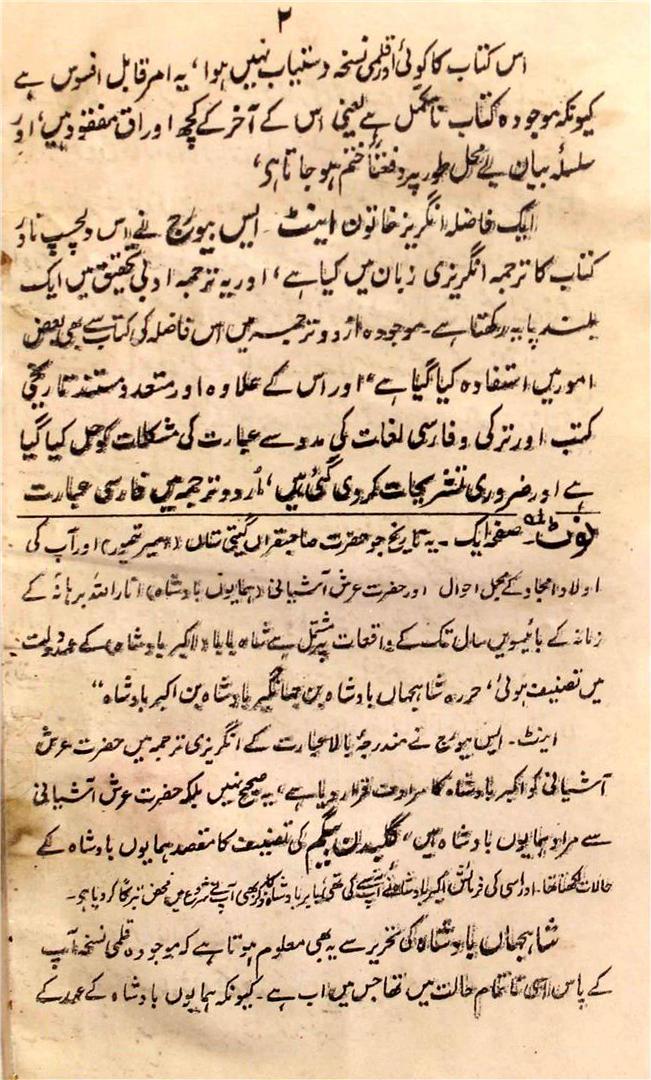 ۲
اس کتاب کا کوئی اور قلمی نسخہ دستیاب نہیں ہوا، یہ امر قابل افسوس ہے
کیونکہ موجودہ کتاب نامکمل ہے یعنی اس کے آخر کے کچھ اوراق مفقود ہیں، اور
سلسلۂ بیان بے محل طور پر دفعتاً ختم ہو جاتا ہے،
ایک فاضلہ انگریز خاتون اینٹ۔ ایس بیورج نے اس دلچسپ نادر
کتاب کا ترجمہ انگریزی زبان میں کیا ہے، اور یہ ترجمہ ادبی تحقیق میں ایک
بلند پایہ رکھتا ہے۔ موجودہ اردو ترجمہ میں اس فاضلہ کی کتاب سے بھی بعض
امور میں استفادہ کیا گیا ہے، اور اس کے علاوہ اور متعدد مستند تاریخی
کتب اور ترکی و فارسی لغات کی مدد سے عبارت کی مشکلات کو حل کیا گیا
ہے اور ضروری تشریحات کر دی گئی ہیں، اُردو ترجمہ میں فارسی عبارت
نوٹ صفحہ ایک۔ یہ تاریخ جو حضرت صاحبقراں گیتی ستاں (امیر تیمور) اور آپ کی
اولاد امجاد کے مجمل احوال اور حضرت عرش آشیانی (ہمایوں بادشاہ) انار اللہ برہانہ کے
زمانہ کے بائیسویں سال تک کے واقعات پر مشتمل ہے شاہ بابا (اکبر بادشاہ) کے عہد دولت
میں تصنیف ہوئی، حررہ شاہجہاں بادشاہ بن جہانگیر بادشاہ بن اکبر بادشاہ"
اینٹ۔ ایس بیورج نے مندرجۂ بالا عبارت کے انگریزی ترجمہ میں حضرت عرش
آشیانی کو اکبر بادشاہ کا مرادف قرار دیا ہے، یہ صحیح نہیں بلکہ حضرت عرش آشیانی
سے مراد ہمایوں بادشاہ ہیں، گلبدن بیگم کی تصنیف کا مقصد ہمایوں بادشاہ کے
حالات لکھنا تھا۔ اور اسی کی فرمائش اکبر بادشاہ نے آپ سے کی تھی بابر بادشاہ کا ذکر بھی آپ نے شروع میں محض تبرکاً کر دیا ہے۔
شاہجہاں بادشاہ کی تحریر سے یہ بھی معلوم ہوتا ہے کہ موجودہ قلمی نسخہ آپ
کے پاس اسی ناتمام حالت میں تھا جس میں اب ہے۔ کیونکہ ہمایوں بادشاہ کے عہد کے